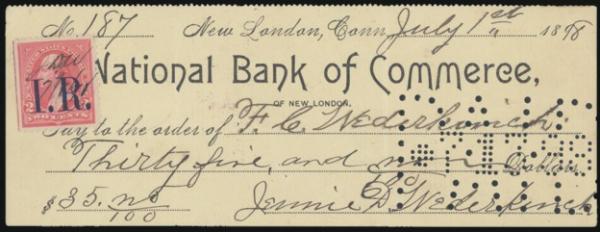 No. 187 New London, Conn. July 1st 1898
National Bank of Commerce,
OF NEW LONDON,
I.R.
TWO CENTS
Pay to the order of F. C. Wederkinch
Thirty five, and no Dollars
$35. no/100 Jennie D. Wederkinch